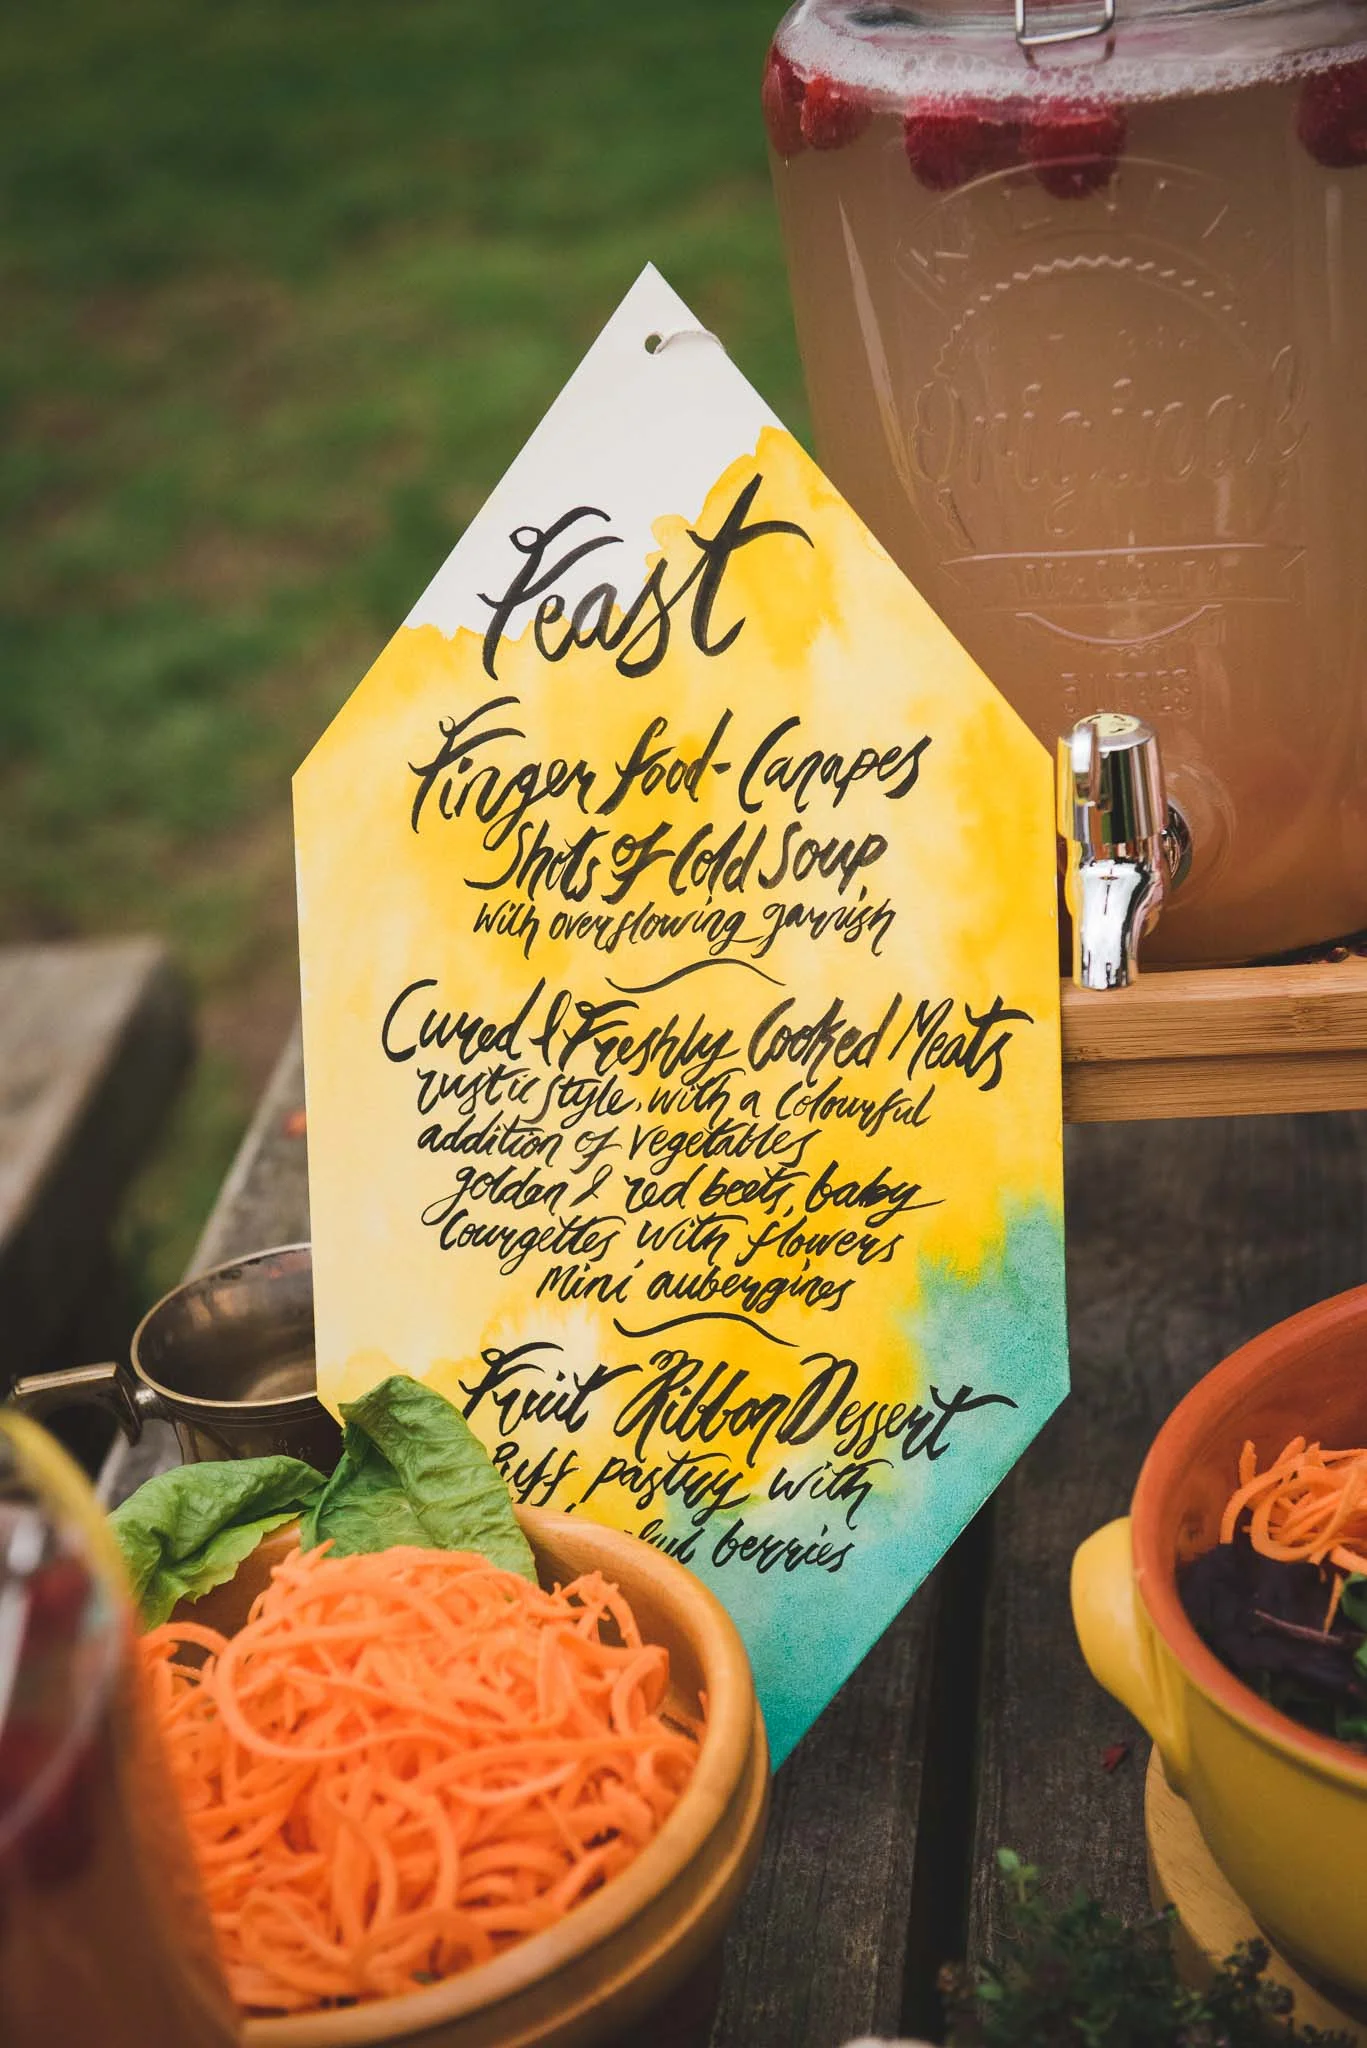 Feast
Finger food - Canapes
Shots of Cold Soup
with overflowing garnish
Cured & Freshly Cooked Meats
rustic style, with a colourful
addition of vegetables
golden & red beets, baby
courgettes with flowers
mini aubergines
Fruit Ribbon Dessert
Puff pastry with
berries
Original